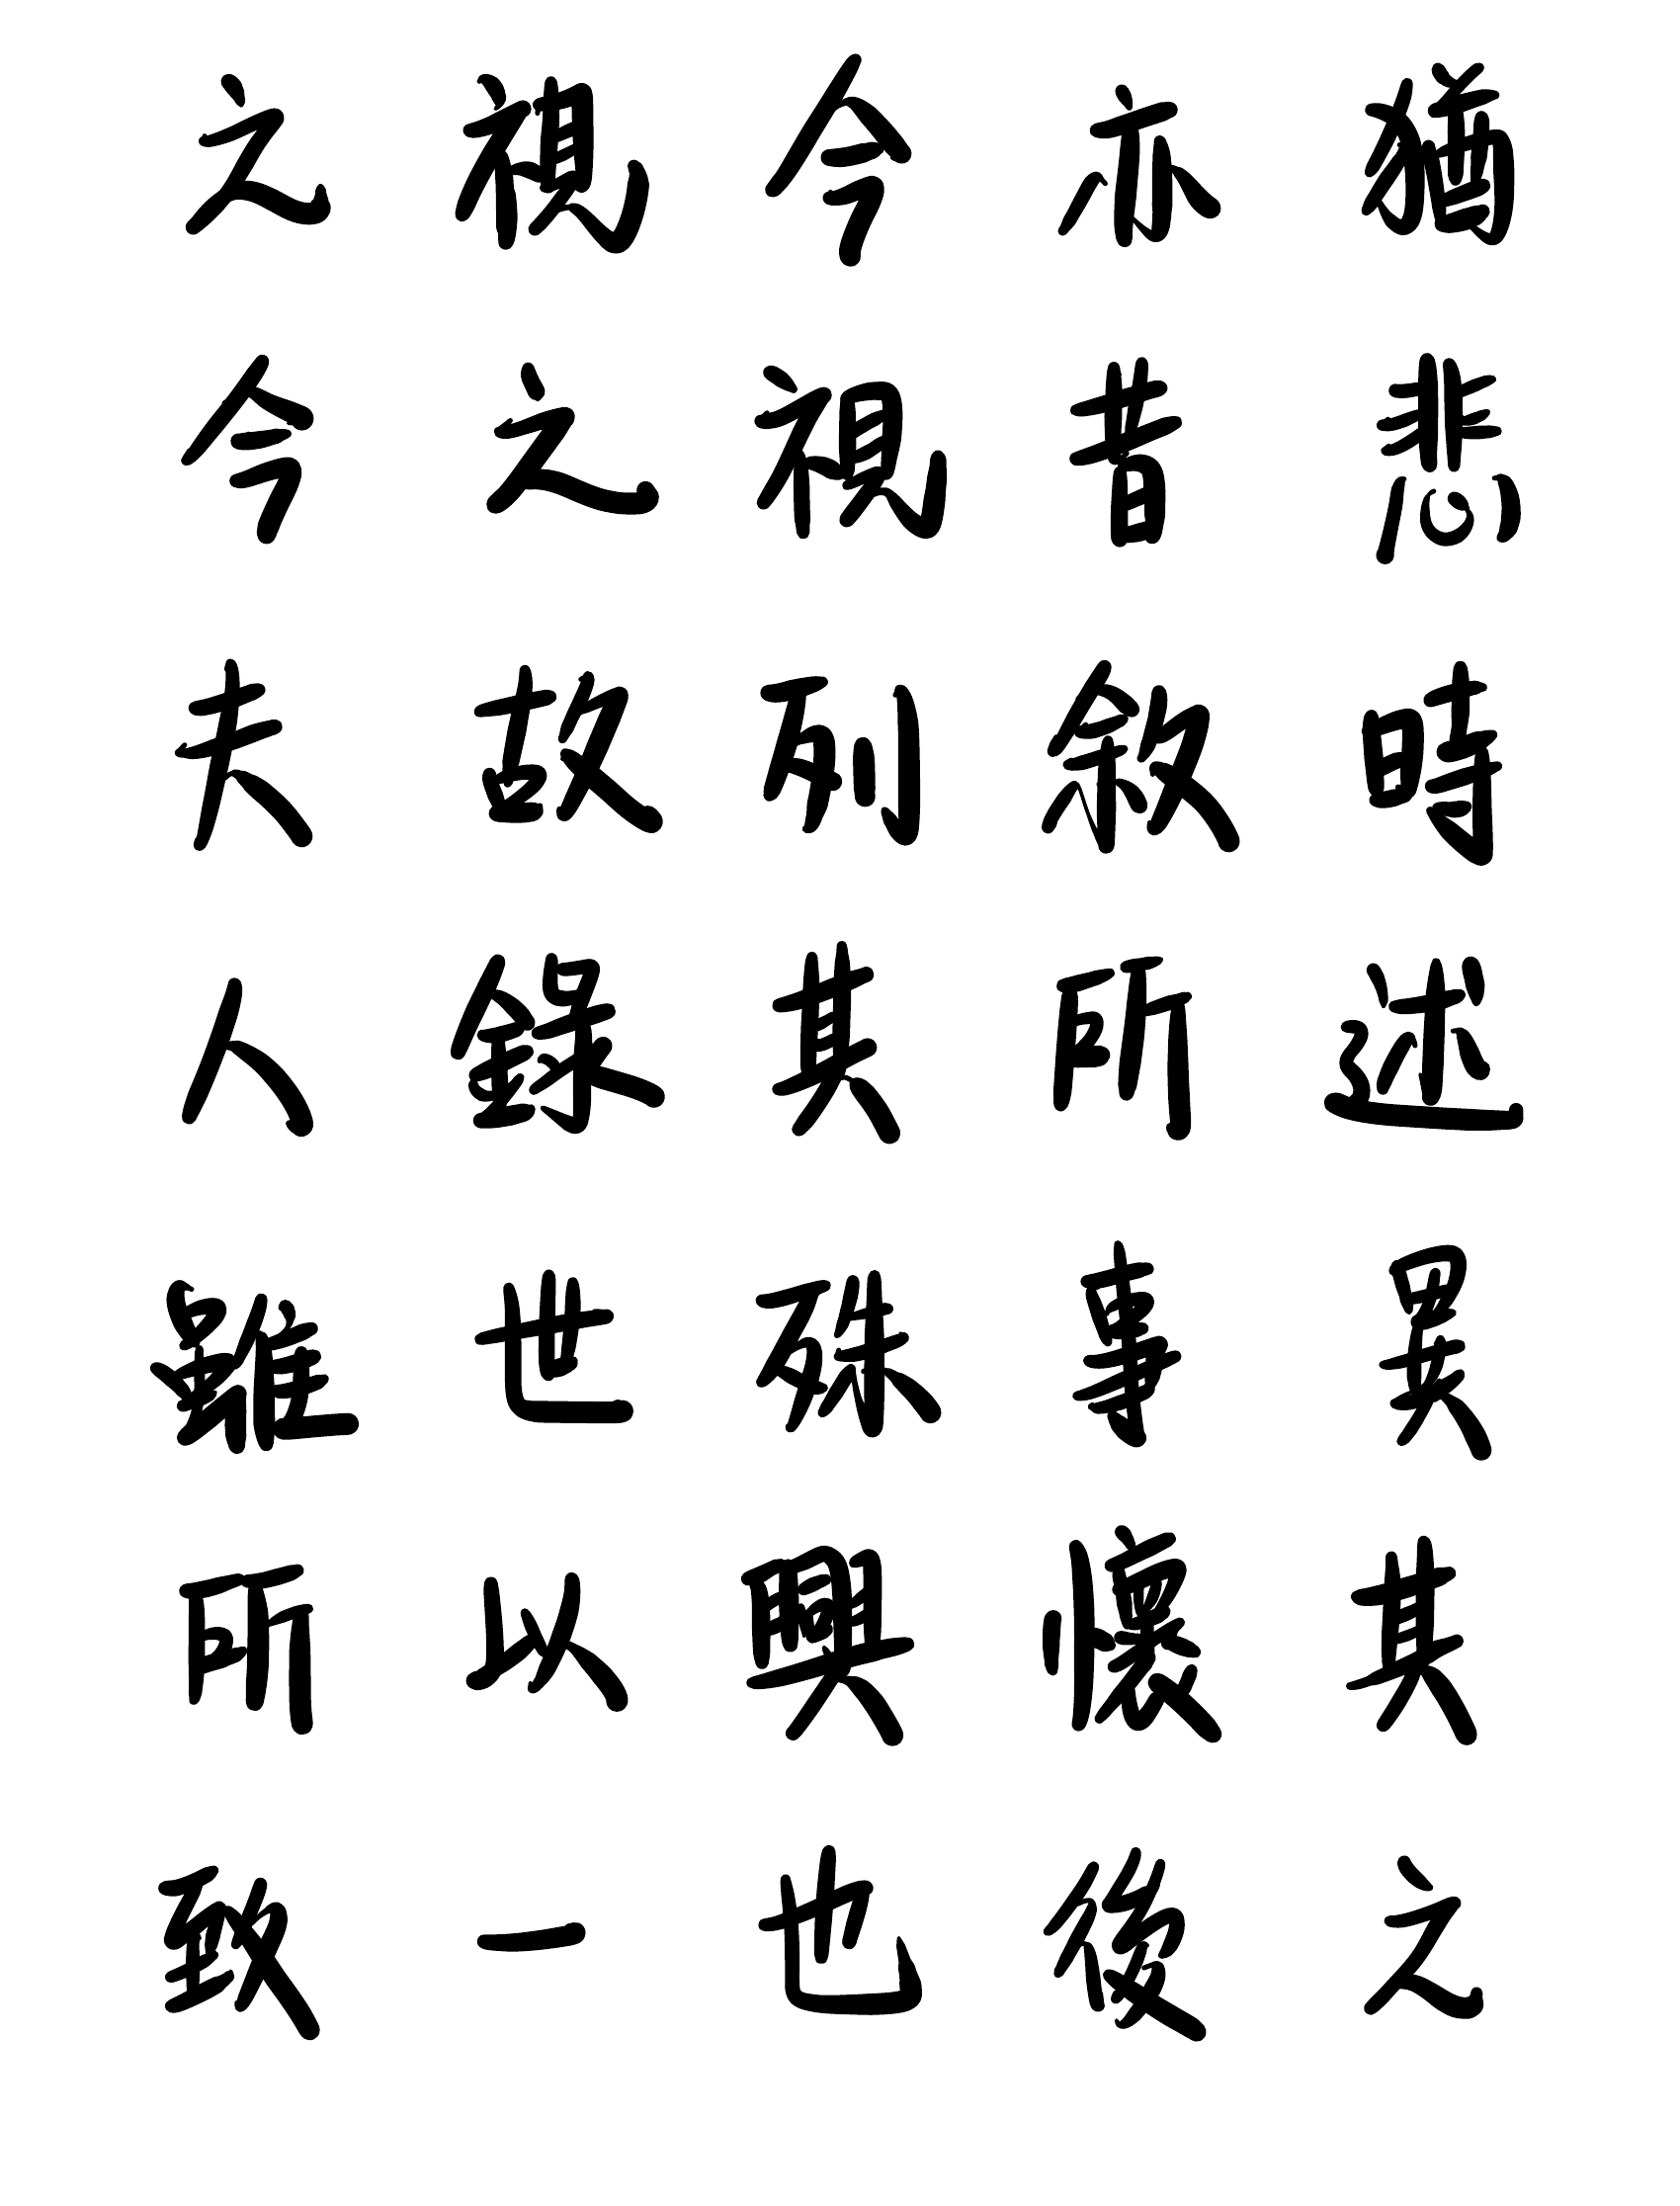 之視今亦猶
今之視昔悲
夫故列敘時
人錄其所述
雖世殊事異
所以興懷其
致一也後之